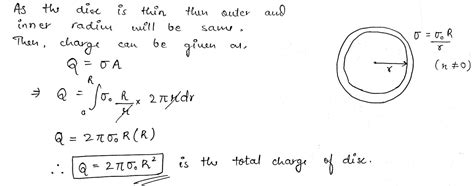 As the disc is thin then outer and
inner radius will be same.
Then, charge can be given as,
Q = σA
⇒ Q = ∫₀ᴿ σ₀ R/r × 2πr dr
Q = 2πσ₀R(R)
∴ Q = 2πσ₀R² is the total charge of disc.
σ = σ₀R/r
r
(r ≠ 0)